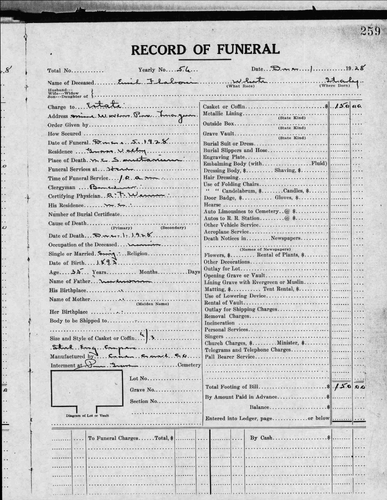 259
RECORD OF FUNERAL
Total No. Yearly No. 56 Date Dec. 1 1928
Name of Deceased Emil White Italy
(What Race) (Where Born)
Husband
Wife Widow
Son Daughter of
Charge to Estate
Address
Order Given by
How Secured
Date of Funeral Dec. 5, 1928
Residence Grass Valley
Place of Death N.C. Sanitarium
Funeral Services at Here
Time of Funeral Service 10 a.m.
Clergyman
Certifying Physician
His Residence N.C.
Number of Burial Certificate
Cause of Death
(Primary) (Secondary)
Date of Death Dec. 1, 1928
Occupation of the Deceased
Single or Married Sing. Religion
Date of Birth 1893
Age 35 Years Months Days
Name of Father unknown
His Birthplace
Name of Mother
(Maiden Name)
Her Birthplace
Body to be Shipped to
Size and Style of Casket or Coffin 6/3
Manufactured by
Interment at Cemetery
Lot No.
Grave No.
Section No.
Diagram of Lot or Vault
Casket or Coffin $ 150 00
Metallic Lining
(State Kind)
Outside Box
(State Kind)
Grave Vault
(State Kind)
Burial Suit or Dress
Burial Slippers and Hose
Engraving Plate
Embalming Body (with Fluid)
Dressing Body, $ Shaving, $
Hair Dressing
Use of Folding Chairs
" " Candelabrum, $ Candles, $
Door Badge, $ Gloves, $
Hearse
Auto Limousines to Cemetery @ $
Autos to R. R. Station @ $
Other Vehicle Service
Aeroplane Service
Death Notices in Newspapers
(Names of Newspapers)
Flowers, $ Rental of Plants, $
Other Decorations
Outlay for Lot
Opening Grave or Vault
Lining Grave with Evergreen or Muslin
Matting, $ Tent Rental, $
Use of Lowering Device
Rental of Vault
Outlay for Shipping Charges
Removal Charges
Incineration
Personal Services
Singers
Church Charges, $ Minister, $
Telegrams and Telephone Charges
Pall Bearer Service
Total Footing of Bill $ 150 00
By Amount Paid in Advance $
Balance $
Entered into Ledger, page or below
To Funeral Charges Total, $
By Cash $